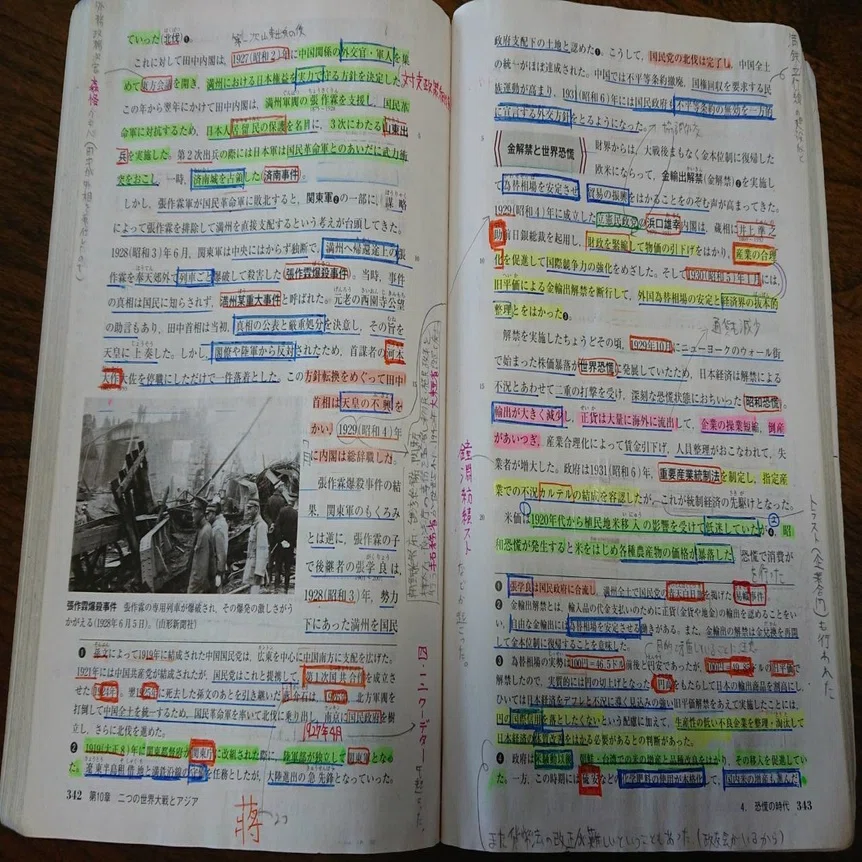 ていった(北伐)❶。
これに対して田中内閣は、1927(昭和2)年に中国関係の外交官・軍人を集
めて東方会議を開き、満州における日本権益を実力で守る方針を決定した
この年から翌年にかけて田中内閣は、満州軍閥の張作霖を支援し、国民革
命軍に対抗するため、日本人居留民の保護を名目に、3次にわたる山東出
兵を実施した。第2次出兵の際には日本軍は国民革命軍とのあいだに武力衝
突をおこし、一時、済南城を占領した(済南事件)。
しかし、張作霖軍が国民革命軍に敗北すると、関東軍❷の一部に、謀略
によって張作霖を排除して満州を直接支配するという考えが台頭してきた。
1928(昭和3)年6月、関東軍は中央にはからず独断で、満州へ帰還途上の張
作霖を奉天郊外で列車ごと爆破して殺害した(張作霖爆殺事件)。当時、事件
の真相は国民に知らされず、満州某重大事件と呼ばれた。元老の西園寺公望
の助言もあり、田中首相は当初、真相の公表と厳重処分を決意し、その旨を
天皇に上奏した。しかし、閣僚や陸軍から反対されたため、首謀者の河本
大作大佐を停職にしただけで一件落着とした。この方針転換をめぐって田中
首相は天皇の不興を
かい、1929(昭和4)年
に内閣は総辞職した。
張作霖爆殺事件の結
果、関東軍のもくろみ
とは逆に、張作霖の子
で後継者の張学良は、
1928(昭和3)年、勢力
下にあった満州を国民
張作霖爆殺事件 張作霖の専用列車が爆破され、その爆発の激しさがう
かがえる(1928年6月5日)。(山形新聞社)
❶ 孫文によって1919年に結成された中国国民党は、広東を中心に中国南方に支配を広げた。
1921年には中国共産党が結成されたが、国民党はこれと提携して、第1次国共合作を成立さ
打倒して中国全土を統一するため、国民革命軍を率いて北伐に乗り出し、南京に国民政府を樹
立し、さらに北伐を進めた。
1927年4月
❷ 1919(大正8)年に関東都督府が関東庁に改組された際に、陸軍部が独立して関東軍となっ
た。遼東半島租借地と満鉄沿線の守備を任務としたが、大陸進出の急先鋒となっていった。
四・一二クーデター
蔣
342 第10章 二つの世界大戦とアジア
政府支配下の土地と認めた❶。こうして、国民党の北伐は完了し、中国全土
の統一がほぼ達成された。中国では不平等条約撤廃、国権回収を要求する民
族運動が高まり、1931(昭和6)年には国民政府も不平等条約の無効を一方的
に宣言する外交方針をとるようになった。
金解禁と世界恐慌
財界からは、大戦後まもなく金本位制に復帰した
欧米にならって、金輸出解禁(金解禁)❷を実施し
て為替相場を安定させ、貿易の振興をはかることをのぞむ声が高まってきた。
1929(昭和4)年に成立した立憲民政党の浜口雄幸内閣は、蔵相に井上準之
助前日銀総裁を起用し、財政を緊縮して物価の引下げをはかり、産業の合理
化を促進して国際競争力の強化をめざした。そして1930(昭和5)年1月には、
旧平価による金輸出解禁を断行して、外国為替相場の安定と経済界の抜本的
整理とをはかった❸。
解禁を実施したちょうどその頃、1929年10月にニューヨークのウォール街
で始まった株価暴落が世界恐慌に発展していたため、日本経済は解禁による
不況とあわせて二重の打撃を受け、深刻な恐慌状態におちいった(昭和恐慌)。
輸出が大きく減少し、正貨は大量に海外に流出して、企業の操業短縮、倒産
があいつぎ、産業合理化によって賃金引下げ、人員整理がおこなわれて、失
業者が増大した。政府は1931(昭和6)年、重要産業統制法を制定し、指定産
業での不況カルテルの結成を容認したが、これが統制経済の先駆けとなった。
米価は1920年代から植民地米移入の影響を受けて低迷していたが❹、昭
和恐慌が発生すると米をはじめ各種農産物の価格が暴落した。恐慌で消費が
❶ 張学良は国民政府に合流し、満州全土で国民党の青天白日旗を掲げた(易幟事件)
❷ 金輸出解禁とは、輸入品の代金支払いのために正貨(金貨や地金)の輸出を認めることをい
い、自由な金輸出には為替相場を安定させる働きがある。また、金輸出の解禁は金兌換を再開
して金本位制に復帰することを意味した。
❸ 為替相場の実勢は100円=46.5ドル前後と円安であったが、
解禁したので、実質的には円の切り上げとなった。円高をもたらして日本の輸出商品を割高にし、
ひいては日本経済をデフレと不況に導く見込みの強い旧平価解禁をあえて実施したことには、
国の国際信用を落としたくないという配慮に加えて、生産性の低い不良企業を整理・淘汰して
日本経済の体質改善をはかる必要があるとの判断があった。
鐘淵紡績スト
などが起こった。
❹ 政府は米騒動以後、朝鮮・台湾での米の増産と品種改良をはかり、その移入を促進してい
た。一方、この時期には硫安などの化学肥料の使用が本格化して、国内米の増産も進んだ。
4. 恐慌の時代 343